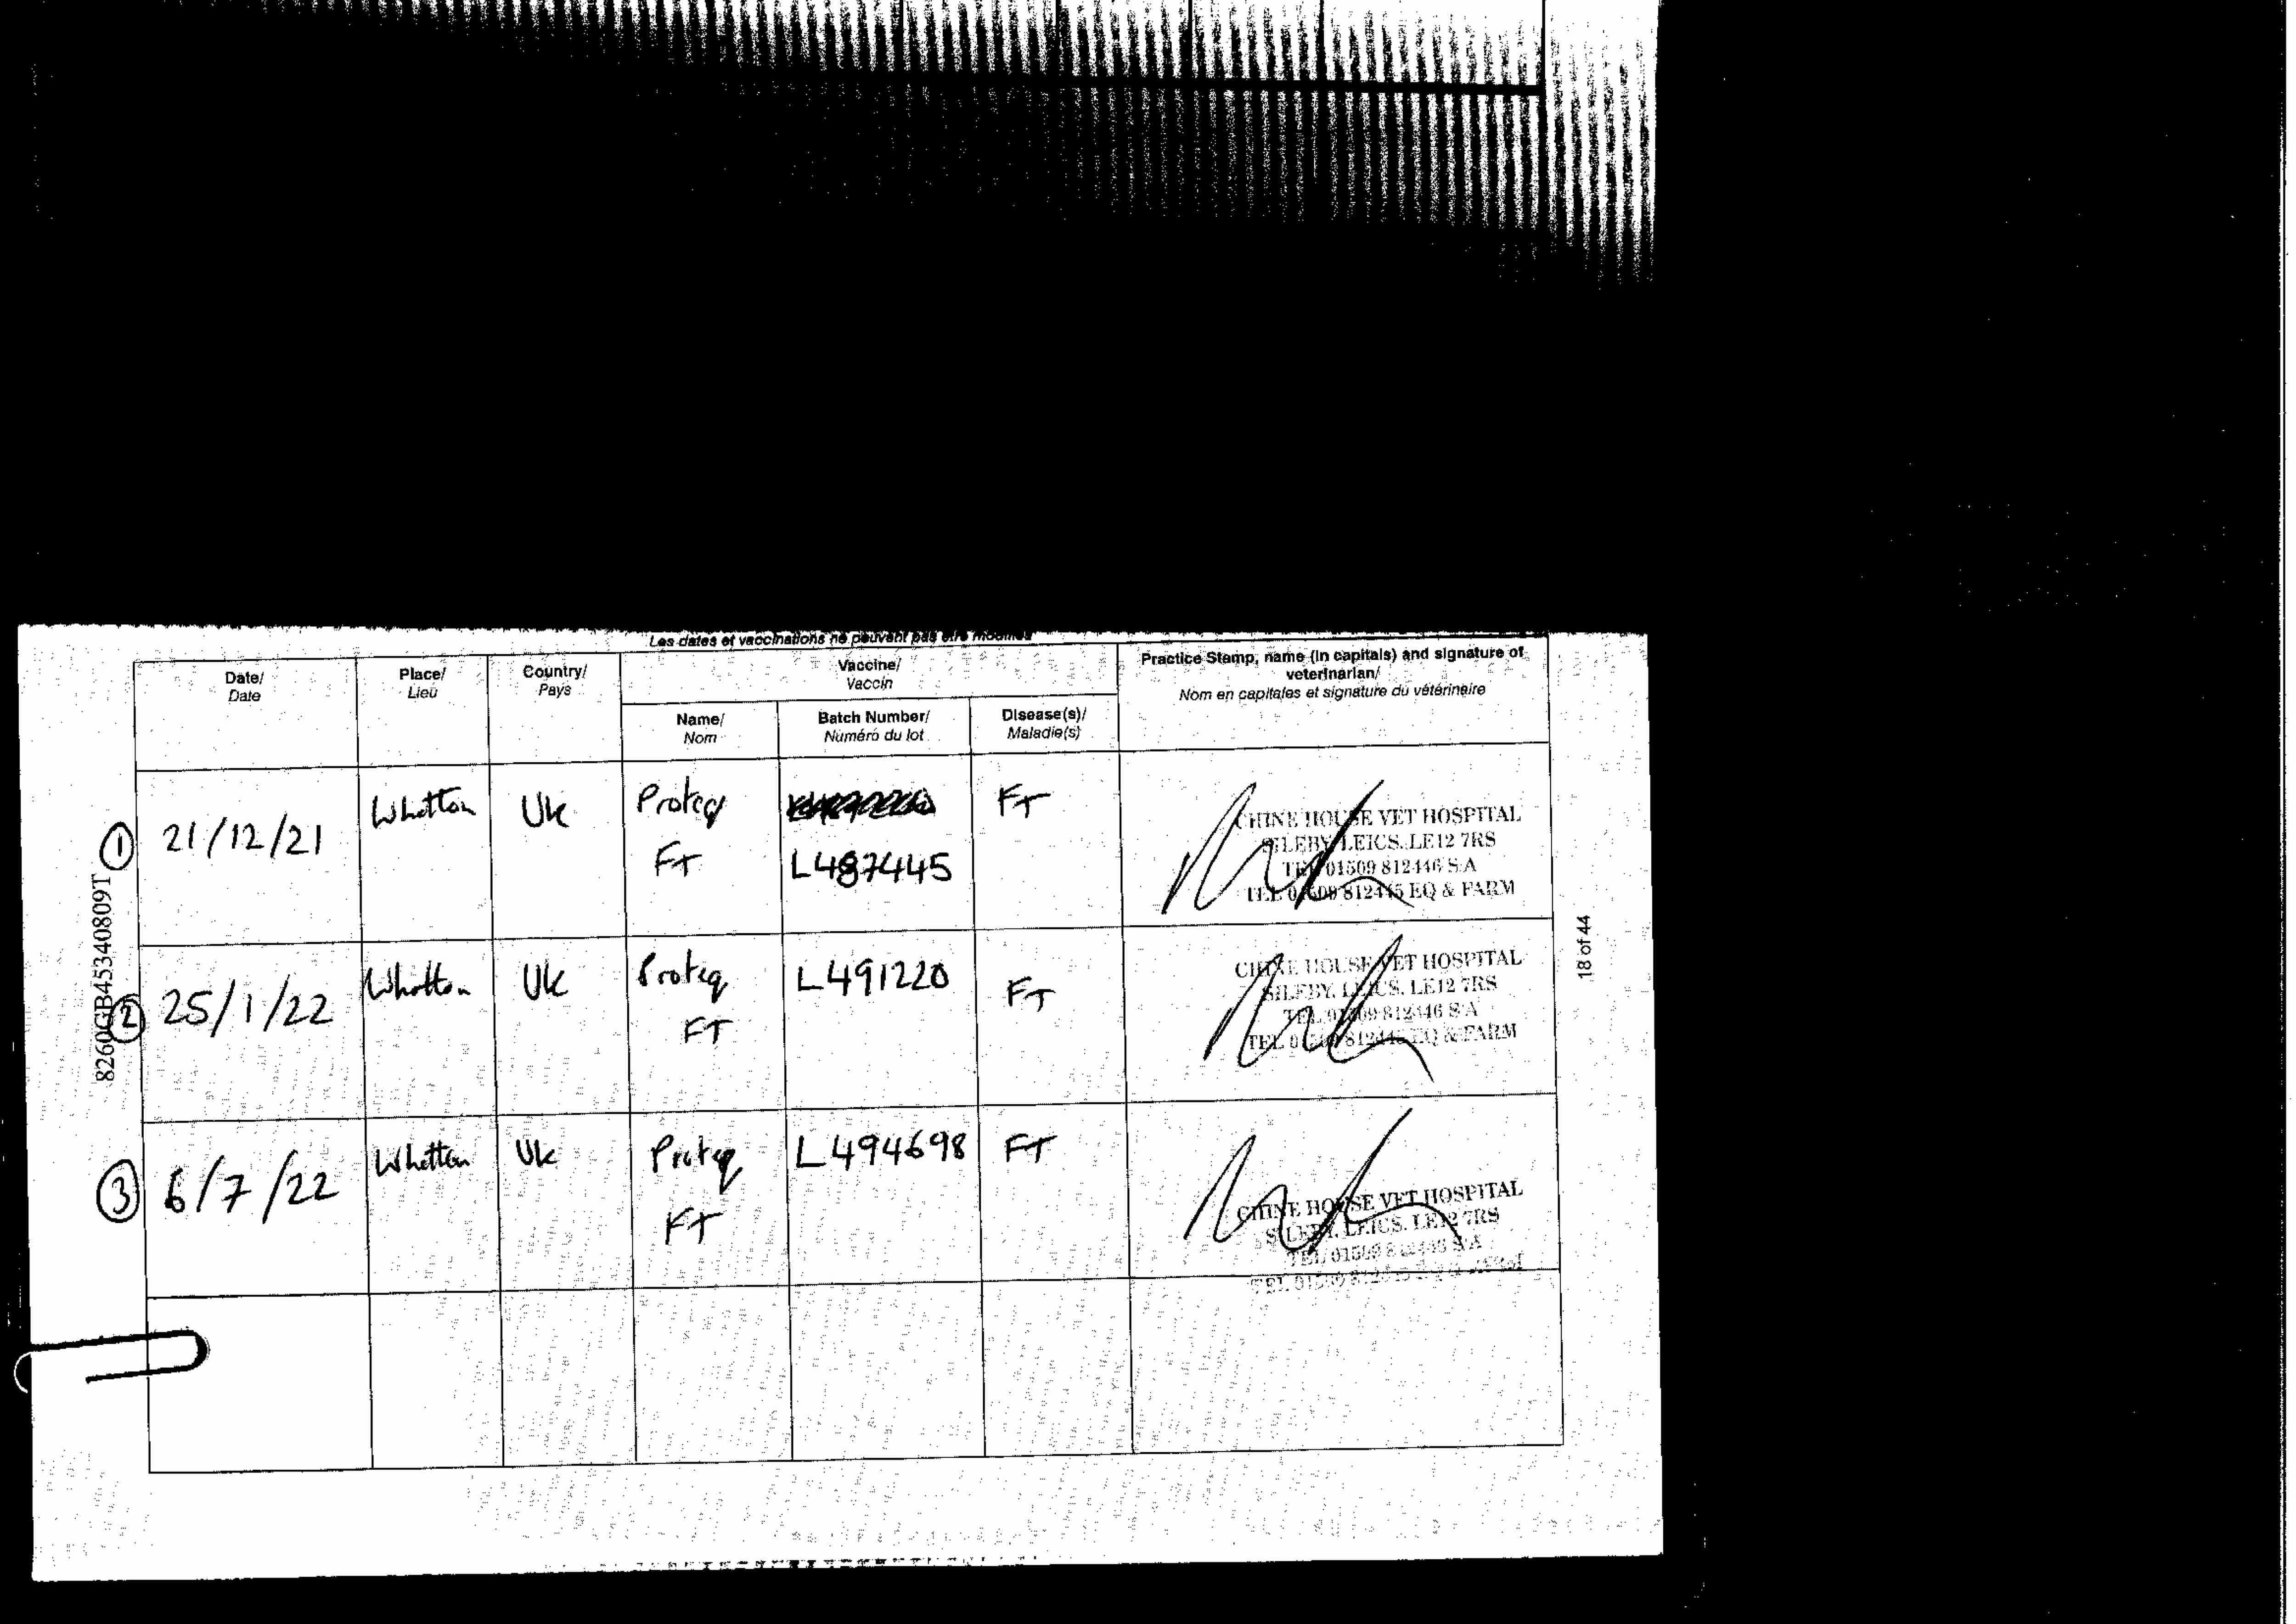 Les dates et vaccinations ne peuvent pas être modifiés
Date/
Date
Place/
Lieu
Country/
Pays
Vaccine/
Vaccin
Practice Stamp, name (in capitals) and signature of
veterinarian/
Nom en capitales et signature du vétérinaire
Name/
Nom
Batch Number/
Numéro du lot
Disease(s)/
Maladie(s)
① 21/12/21
Whatton
Uk
Proteq
FT
L487445
FT
CHINE HOUSE VET HOSPITAL
SILEBY, LEICS. LE12 7RS
TEL 01509 812446 S.A
TEL 01509 812445 EQ & FARM
② 25/1/22
Whatton
Uk
Proteq
FT
L491220
FT
CHINE HOUSE VET HOSPITAL
SILEBY, LEICS. LE12 7RS
TEL 01509 812446 S.A
TEL 01509 812445 EQ & FARM
③ 6/7/22
Whatton
Uk
Proteq
FT
L494698
FT
CHINE HOUSE VET HOSPITAL
SILEBY, LEICS. LE12 7RS
TEL 01509 812446 S.A
TEL 01509
8260GB45340809T
18 of 44